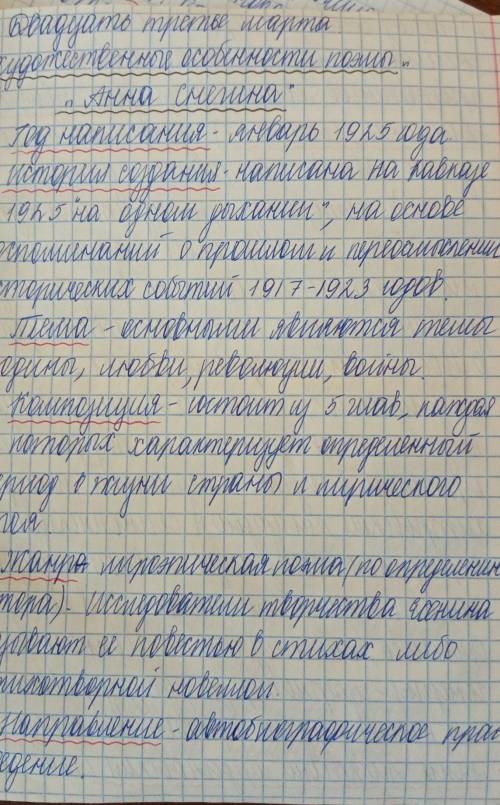 Двадцать третье марта
художественные особенности поэмы
"Анна Снегина"
Год написания - январь 1925 года
История создания - написана на Кавказе
1925 "на одном дыхании", на основе
оспоминаний о прошлом и переосмыслении
сторических событий 1917-1923 годов.
Тема - основными являются темы
одины, любви, революции, войны.
Композиция - состоит из 5 глав, каждая
которых характеризует определенный
ериод в жизни страны и лирического
роя.
Жанр - лироэпическая поэма (по определени
тора). Исследователи творчества Есенина
зывают ее повестью в стихах либо
тихотворной новеллой.
Направление - автобиографическое прои
ведение.